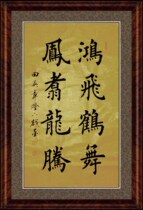 鴻飛鶴舞
鳳翥龍騰